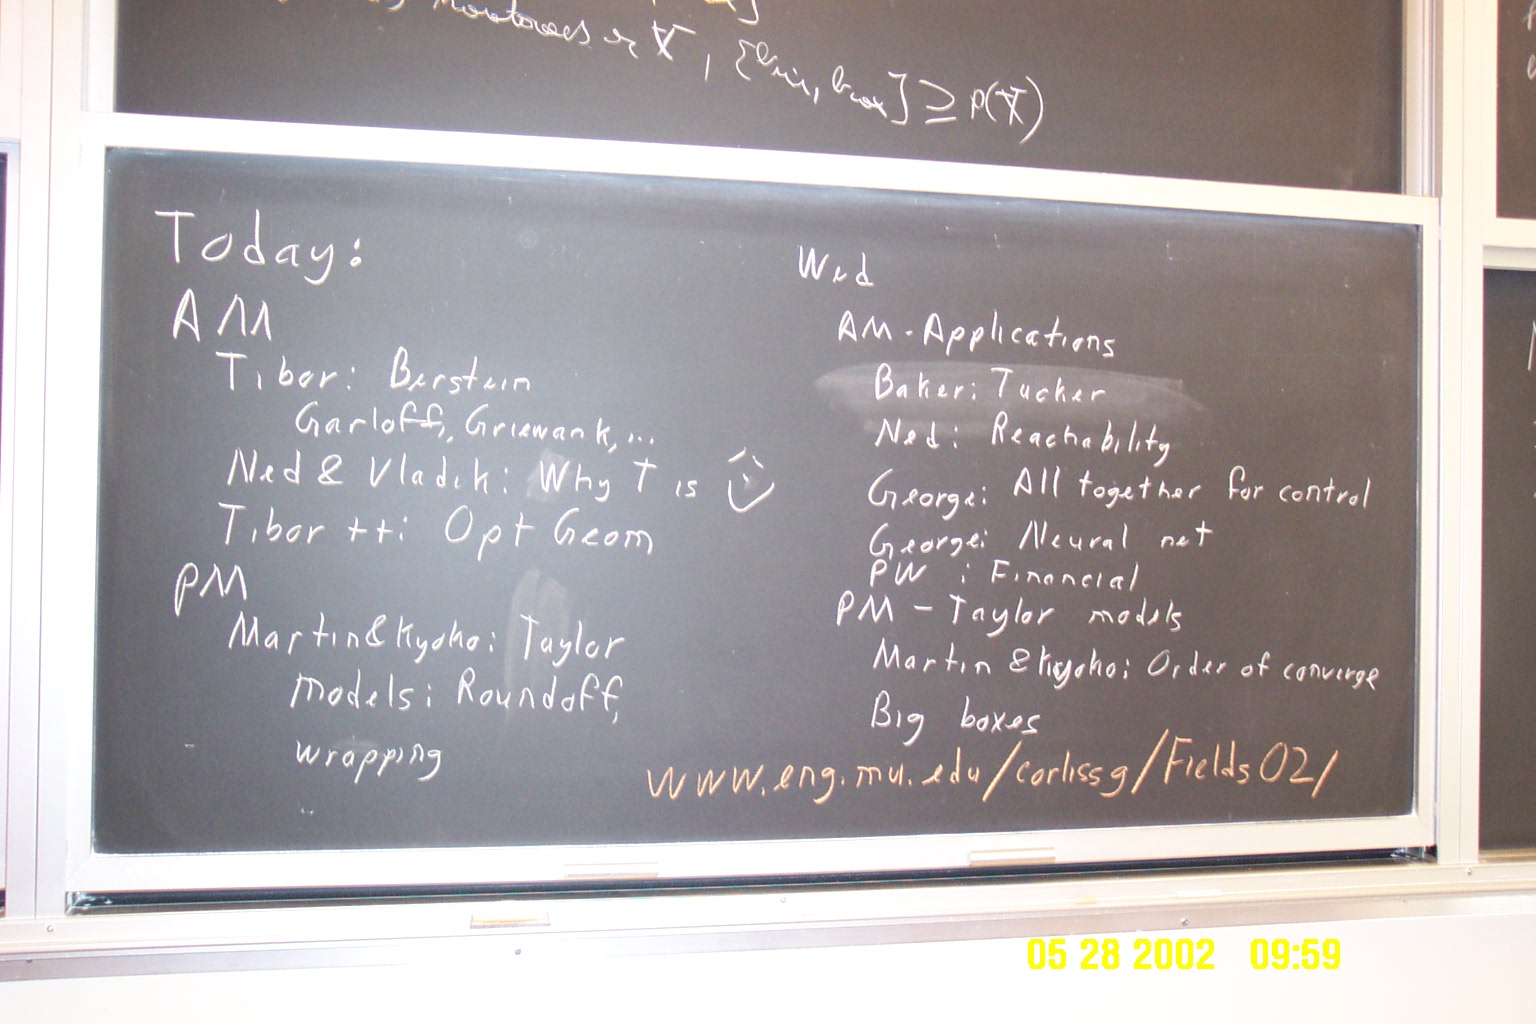 , {min, max] ≥ p(X)
Today:
AM
Tibor: Berstein
Garloff, Griewank, ...
Ned & Vladik: Why T is
Tibor ++: Opt Geom
PM
Martin & Kyoko: Taylor
models: Roundoff,
wrapping
Wed
AM - Applications
Baker: Tucker
Ned: Reachability
George: All together for control
George: Neural net
PW : Financial
PM - Taylor models
Martin & Kyoko: Order of converge
Big boxes
www.eng.mu.edu/corlissg/Fields02/
05 28 2002 09:59